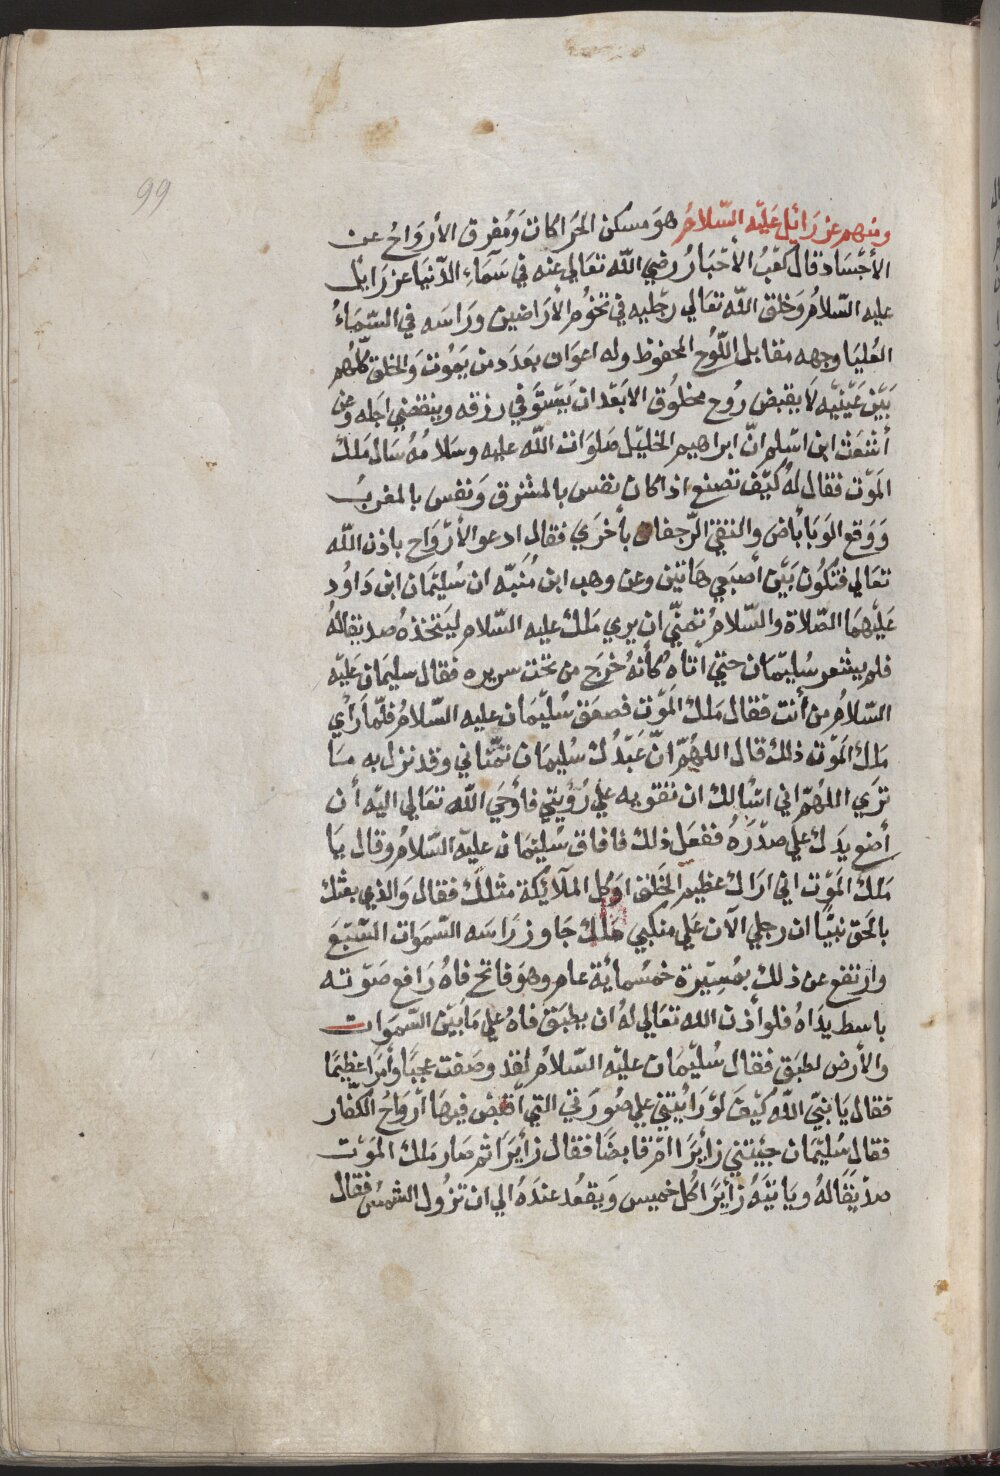 99
ومنهم عزرائل عليه السلام هو مسكن الحراكات ومفرق الأرواح عن
الأجساد قال كعب الأحبار رضي الله تعالى عنه في سماء الدنيا عزرايل
عليه السلام وخلق الله تعالي رجليه في تخوم الأراضين وراسه في السماء
العليا وجهه مقابل اللوح المحفوظ وله اعوان بعدد من يموت والخلق كلهم
بين عينيه لا يقبض روح مخلوق الا بعد ان يستوفي رزقه وينقضي اجله وعن
أشعث ابن اسلم انّ ابراهيم الخليل صلوات الله عليه وسلامه سال ملك
الموت فقال له كيف تصنع اذا كان نفس بالمشرق ونفس بالمغرب
ووقع الوبا بأرض والتقي الزحفان بأخري فقال ادعو الأرواح باذن الله
تعالي فتكون بين أصبعي هاتين وعن وهب ابن منبه ان سليمان ابن داود
عليهما الصلاة والسلام تمنّي ان يري ملك عليه السلام ليتخذه صديقاله
فلم يشعر سليمان حتي أتاه كأنه خرج من تحت سريره فقال سليمان عليه
السلام من أنت فقال ملك الموت فصعق سليمان عليه السلام فلما رأي
ملك الموت ذلك قال اللهم انّ عبدك سليمان تمناني وقد نزل به ما
تري اللهم اني اسالك ان تقويه علي رؤيتي فأوحي الله تعالي اليه أن
أضع يدك علي صدره ففعل ذلك فافاق سليمان عليه السلام وقال يا
ملك الموت اني اراك عظيم الخلق اوكل الملايكة مثلك فقال والذي بعثك
بالحق نبيًا ان رجلي الآن علي منكبي ملك جاوز راسه السموات السبع
وارتفع عن ذلك بمسيرة خمسماية عام وهو فاتح فاه رافع صوته
باسط يداه فلو أذن الله تعالي له ان يطبق فاه علي ما بين السموات
والأرض لطبق فقال سليمان عليه السلام لقد وصفت عجبًا وأمرًا عظيمًا
فقال يا نبي الله كيف لو رايتني علي صورتي التي أقبض فيها أرواح الكفار
فقال سليمان جيئتني زأيرًا ام قابضًا فقال زأيرًا ثم صار ملك الموت
صديقًاله وياتيه زأيرًا كل خميس ويقعد عنده الي ان تزول الشمس فقال